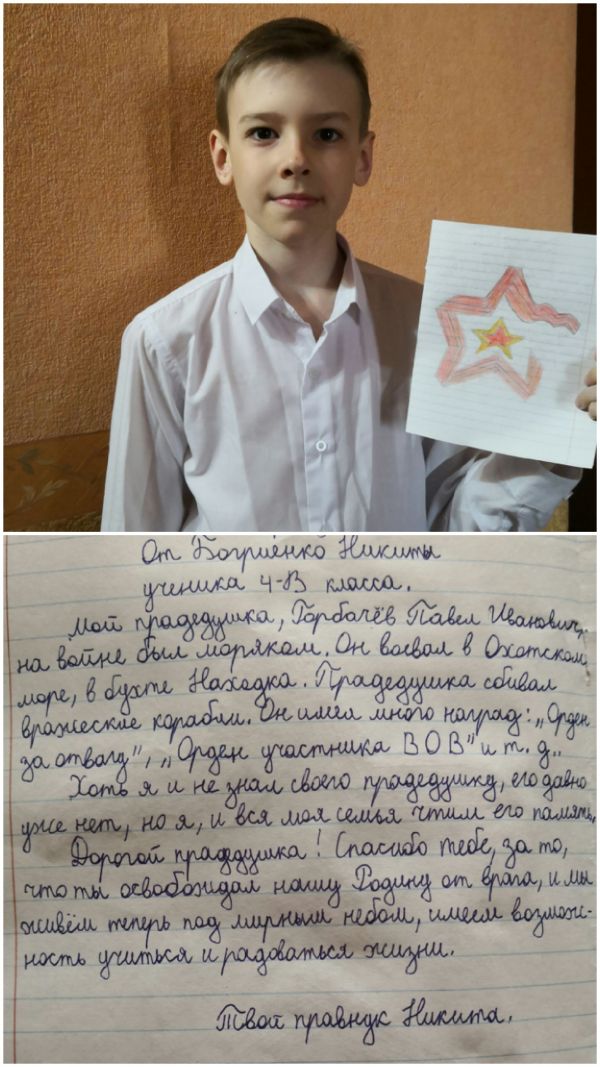 От Богриенко Никиты
ученика 4-В класса.
Мой прадедушка, Горбачёв Павел Иванович,
на войне был моряком. Он воевал в Охотском
море, в бухте Находка. Прадедушка сбивал
вражеские корабли. Он имел много наград: „Орден
за отвагу", „Орден участника ВОВ" и т. д..
Хоть я и не знал своего прадедушку, его давно
уже нет, но я, и вся моя семья чтим его память.
Дорогой прадедушка! Спасибо тебе, за то,
что ты освобождал нашу Родину от врага, и мы
живём теперь под мирным небом, имеем возмож-
ность учиться и радоваться жизни.
Твой правнук Никита.